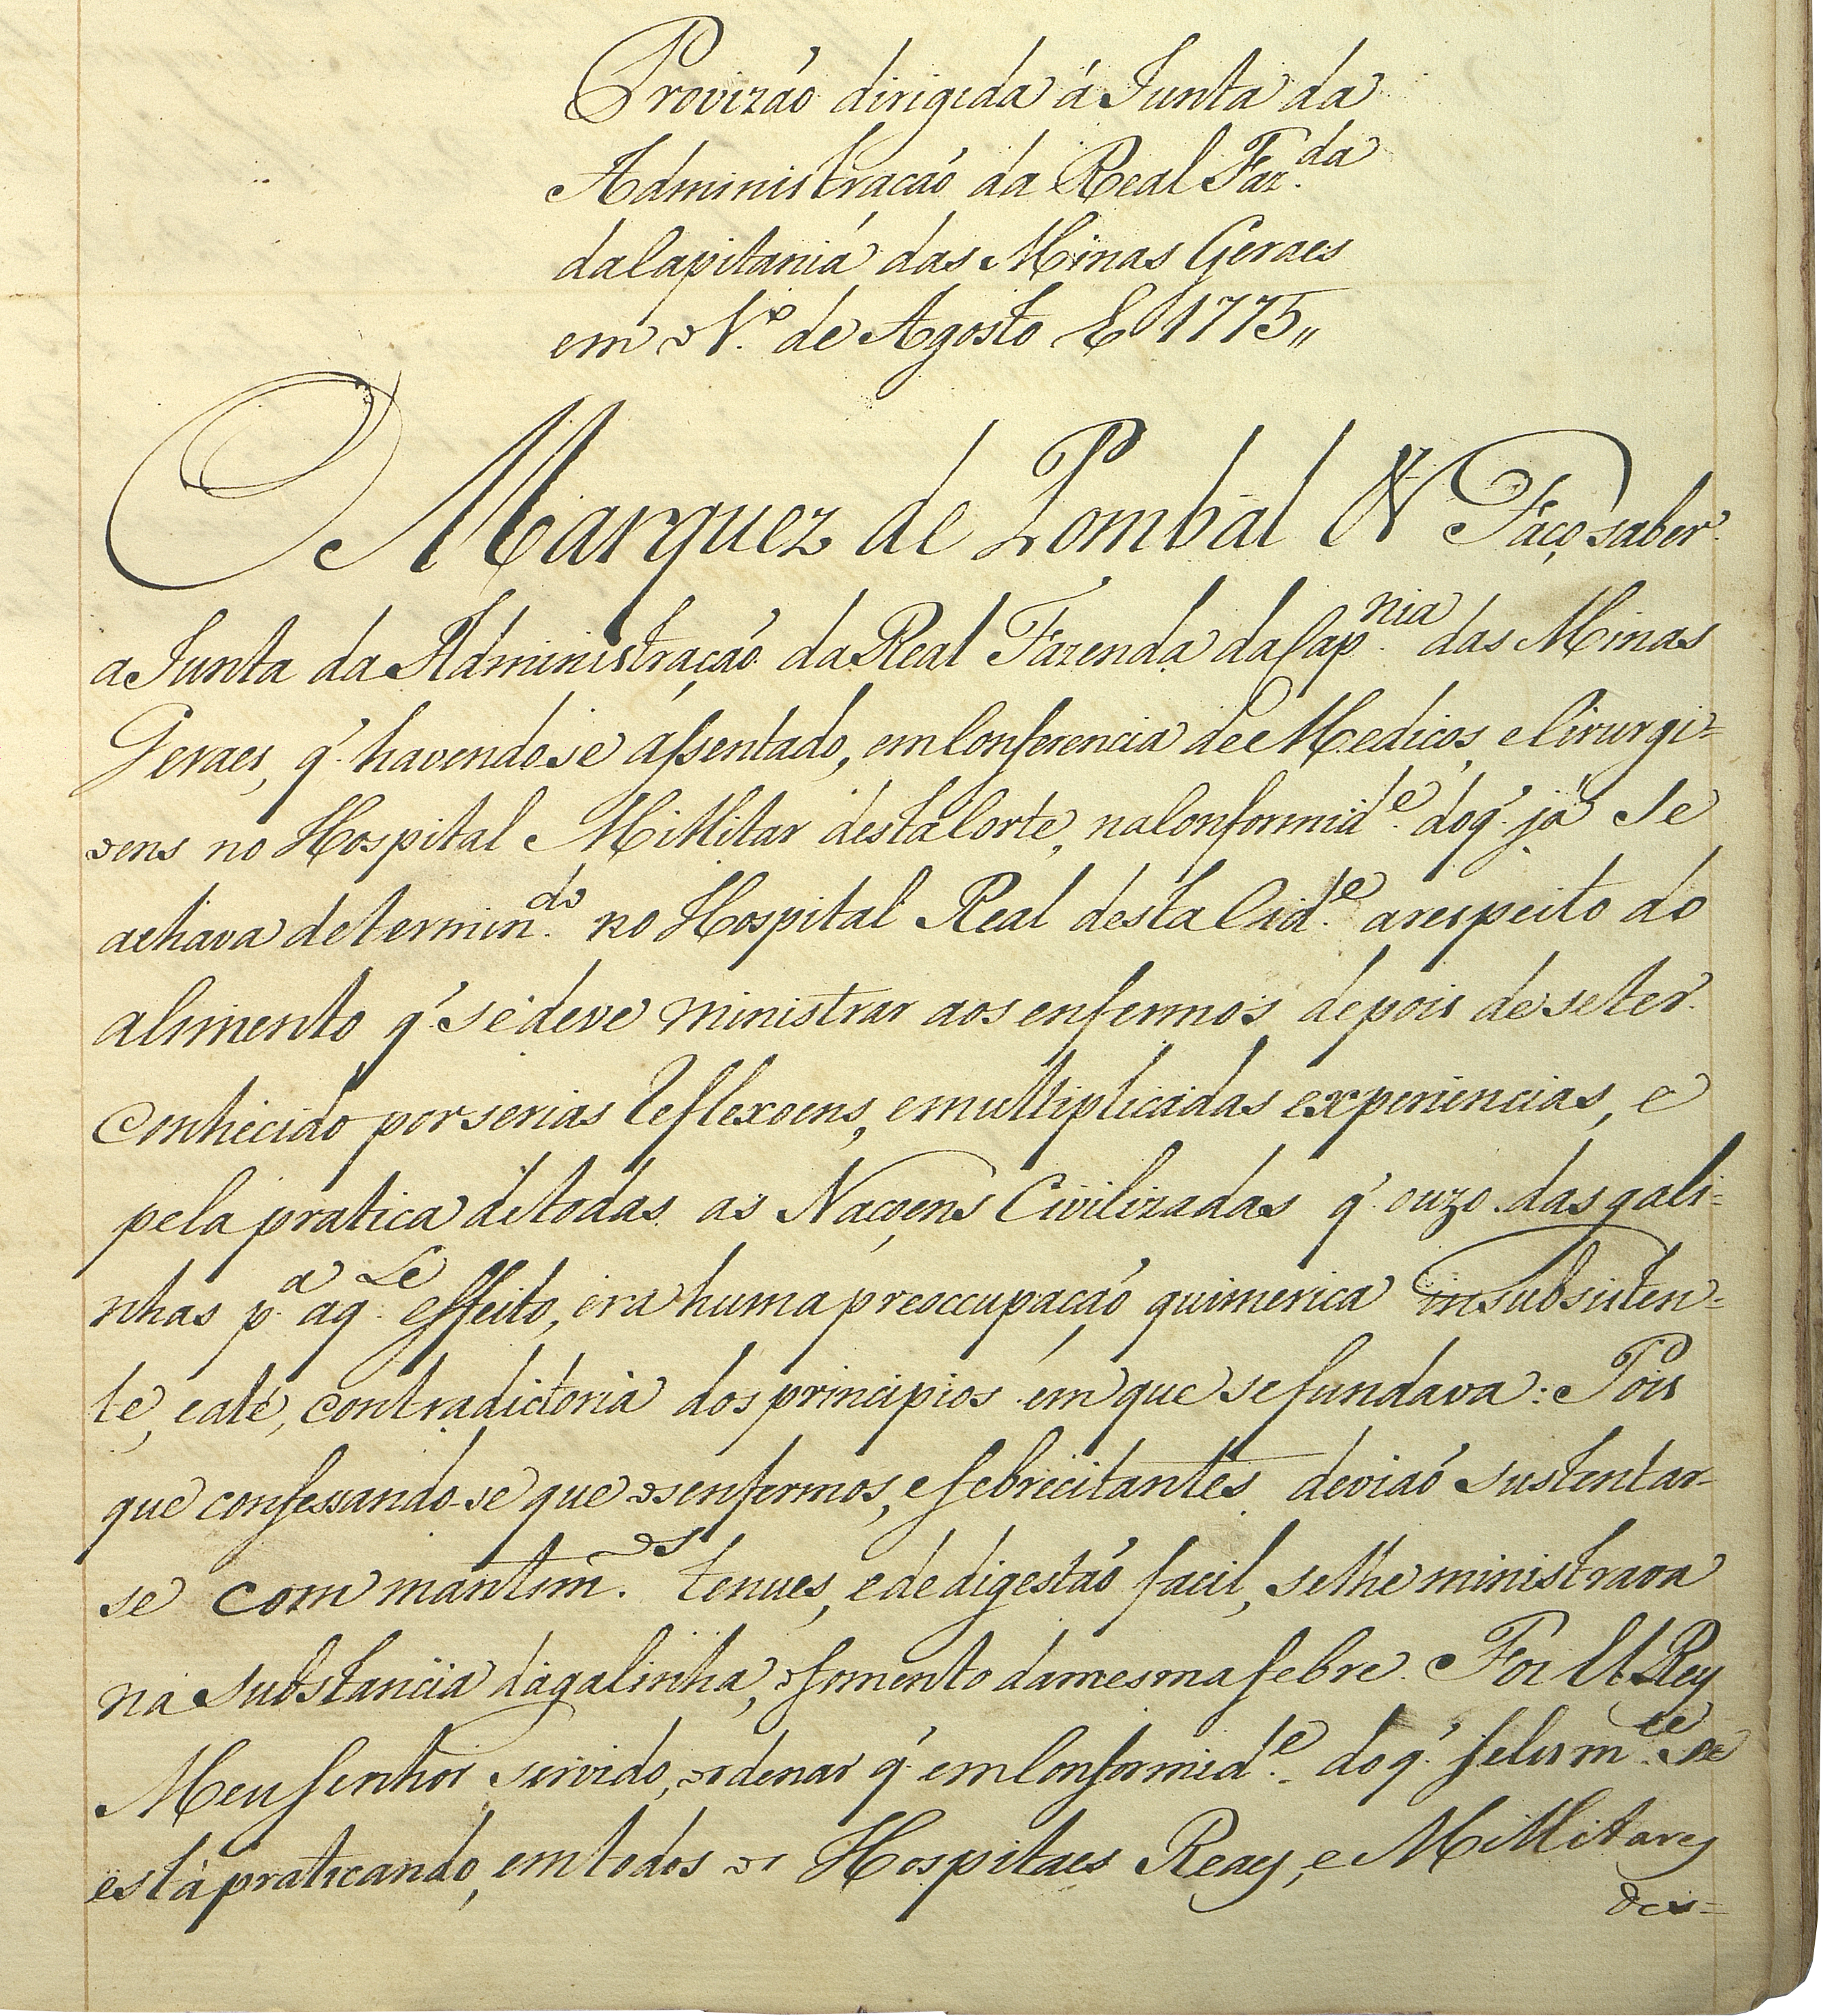 Provizaó dirigida á Junta da
Administracaó da Real Faz.da
da Capitania das Minas Geraes
em o 1.º de Agosto E 1775,,
O Marquez de Pombal & Faço saber
a Junta da Administração da Real Fazenda da Cap.nia das Minas
Geraes, q' havendo se assentado, em Conferencia de Medicos, e Cirurgi=
oens no Hospital Millitar desta Corte, na Conformid.e do q' já se
achava determin.do no Hospital Real desta Cid.e a respeito do
alimento q' se deve ministrar aos enfermos, depois de se ter
conhecido por serias Reflexoens, e multiplicadas experiencias, e
pela pratica de todas as Naçoens Civilizadas q' o uzo das gali=
nhas p.a aq.le effeito, era huma preoccupação quimerica insubsisten=
te, e até, contradictoria dos principios em que se fundava: Pois
que confessando-se que os enfermos, e febrecitantes deviaó sustentar-
se com mantim.os tenues, e de digestaó facil, se lhe ministrava
na substancia da galinha, o fomento da mesma febre. Foi El Rey
Meu Senhor servido, ordenar q' em Conformid.e do q' felism.te se
está praticando, em todos os Hospitaes Reaes, e Millitares
des=